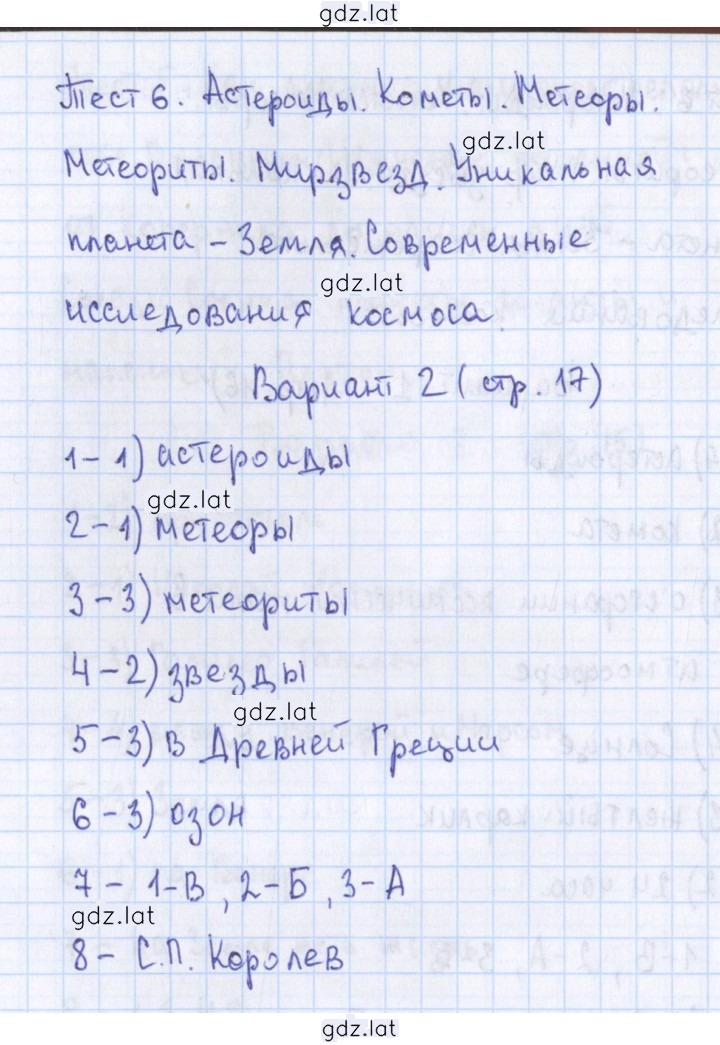 gdz.lat
Тест 6. Астероиды. Кометы. Метеоры.
gdz.lat
Метеориты. Мир звезд. Уникальная
планета – Земля. Современные
gdz.lat
исследования космоса.
Вариант 2 (стр. 17)
1 – 1) астероиды
gdz.lat
2 – 1) метеоры
3 – 3) метеориты
4 – 2) звезды
gdz.lat
5 – 3) В Древней Греции
6 – 3) озон
7 – 1-В, 2-Б, 3-А
gdz.lat
8 – С.П. Королев
gdz.lat